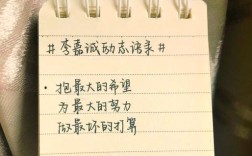 #李嘉诚励志语录#
·抱最大的希望
为最大的努力
做最坏的打算